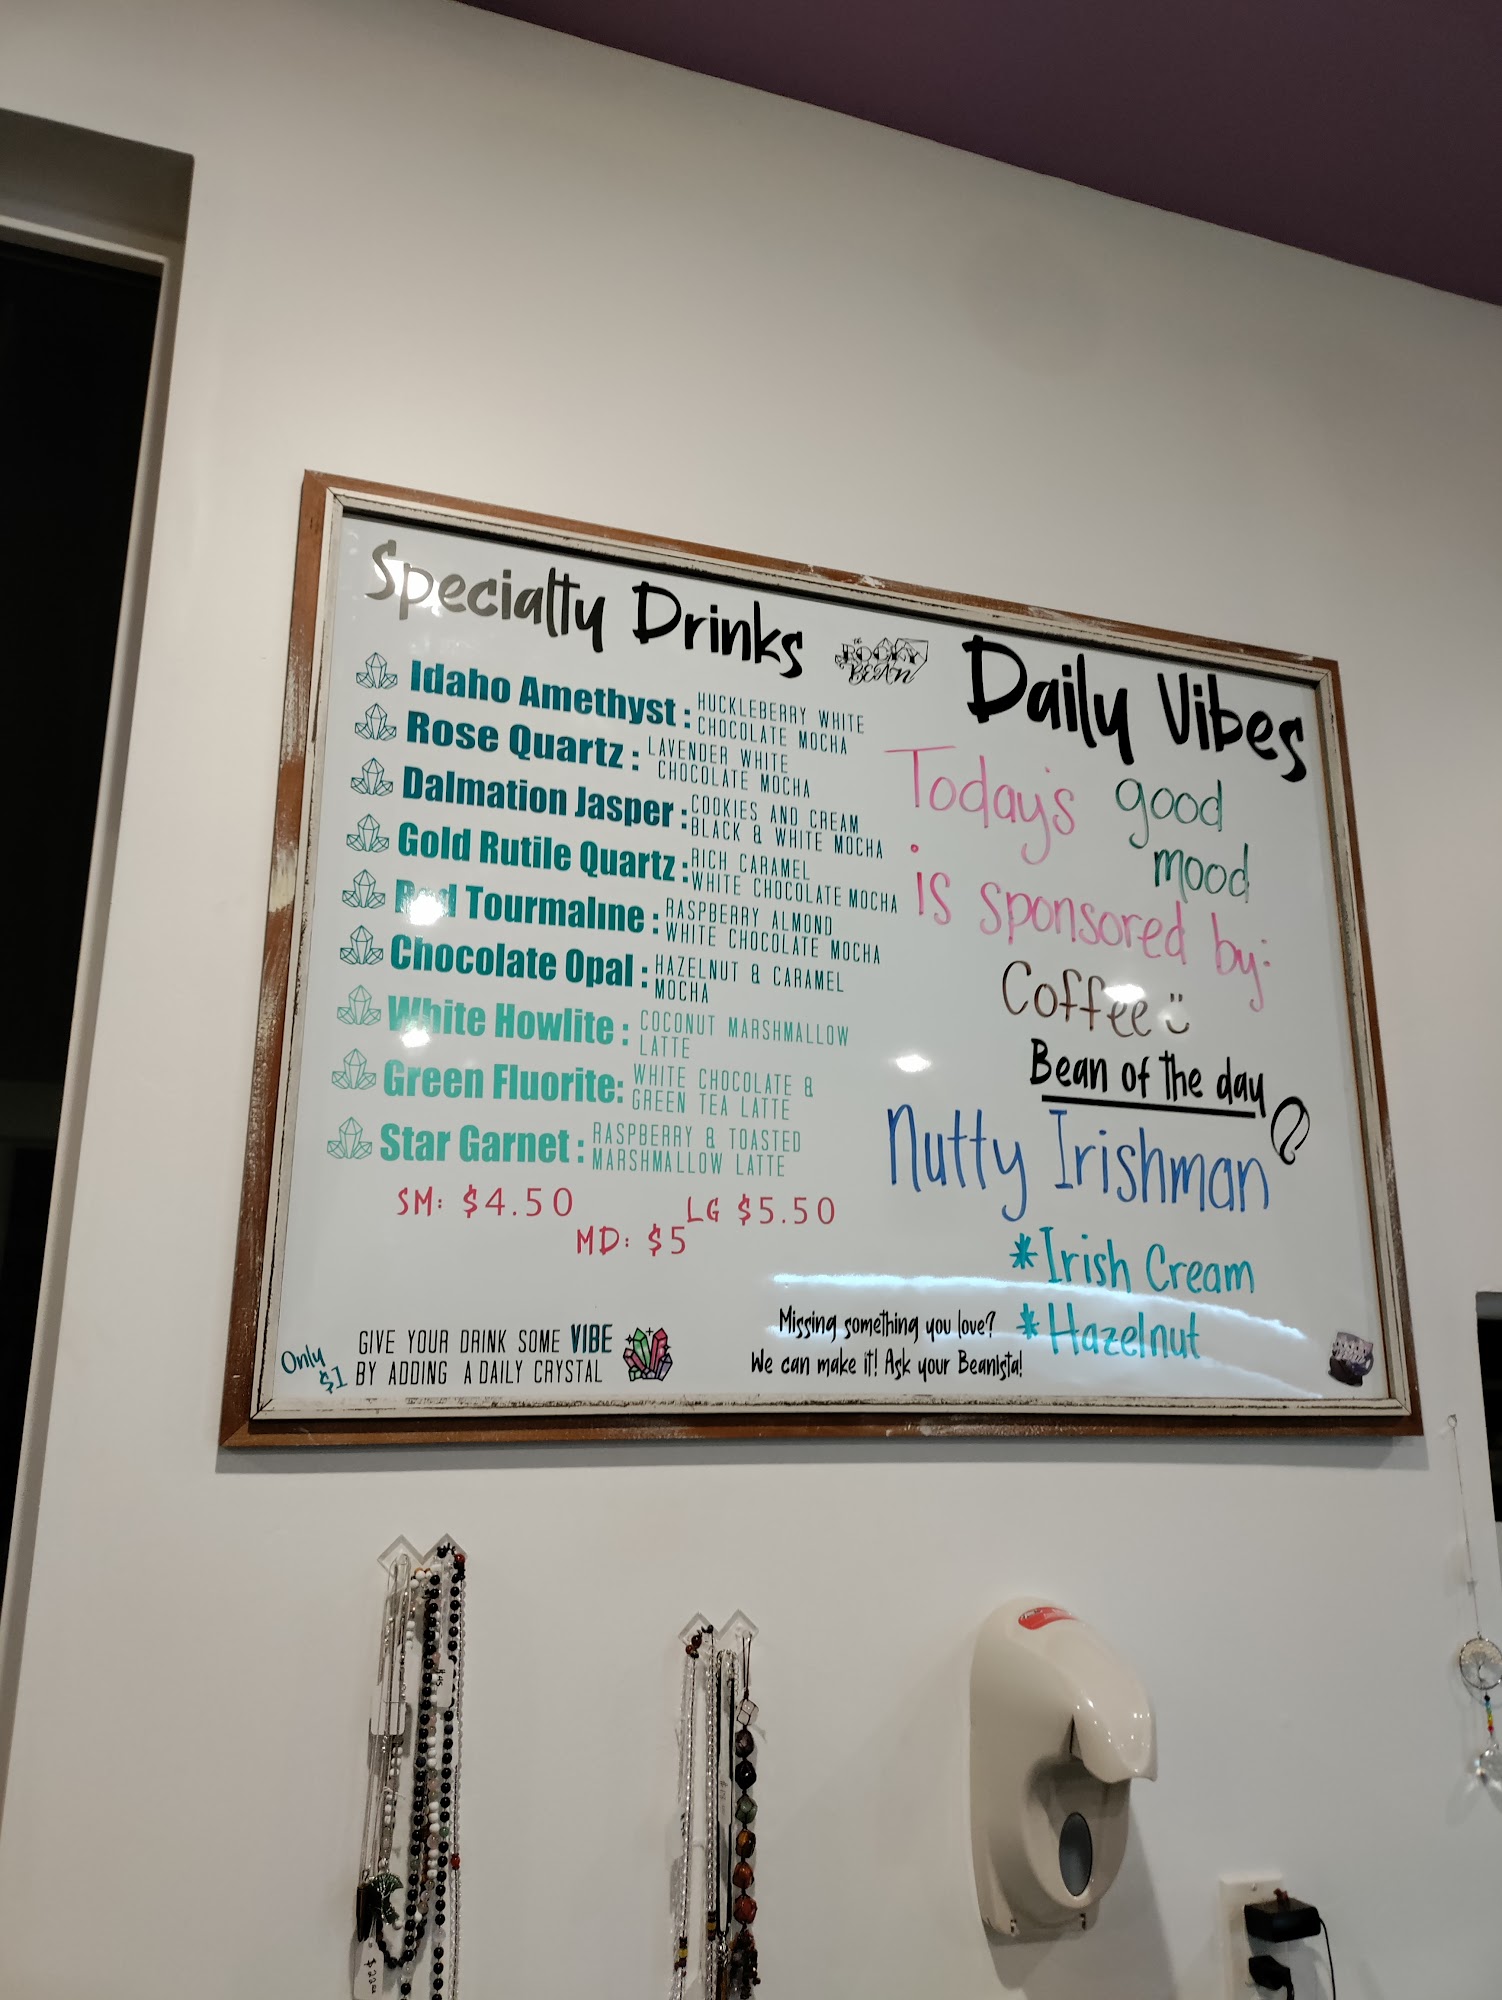 Specialty Drinks
Idaho Amethyst : HUCKLEBERRY WHITE
CHOCOLATE MOCHA
Rose Quartz : LAVENDER WHITE
CHOCOLATE MOCHA
Dalmation Jasper : COOKIES AND CREAM
BLACK & WHITE MOCHA
Gold Rutile Quartz : RICH CARAMEL
WHITE CHOCOLATE MOCHA
Red Tourmaline : RASPBERRY ALMOND
WHITE CHOCOLATE MOCHA
Chocolate Opal : HAZELNUT & CARAMEL
MOCHA
White Howlite : COCONUT MARSHMALLOW
LATTE
Green Fluorite: WHITE CHOCOLATE &
GREEN TEA LATTE
Star Garnet : RASPBERRY & TOASTED
MARSHMALLOW LATTE
SM: $4.50
MD: $5
LG $5.50
Only
$1
GIVE YOUR DRINK SOME VIBE
BY ADDING A DAILY CRYSTAL
THE
ROCKY
BEAN
Daily Vibes
Today's good
mood
is sponsored by:
Coffee
Bean of the day
Nutty Irishman
*Irish Cream
*Hazelnut
Missing something you love?
We can make it! Ask your Beanista!